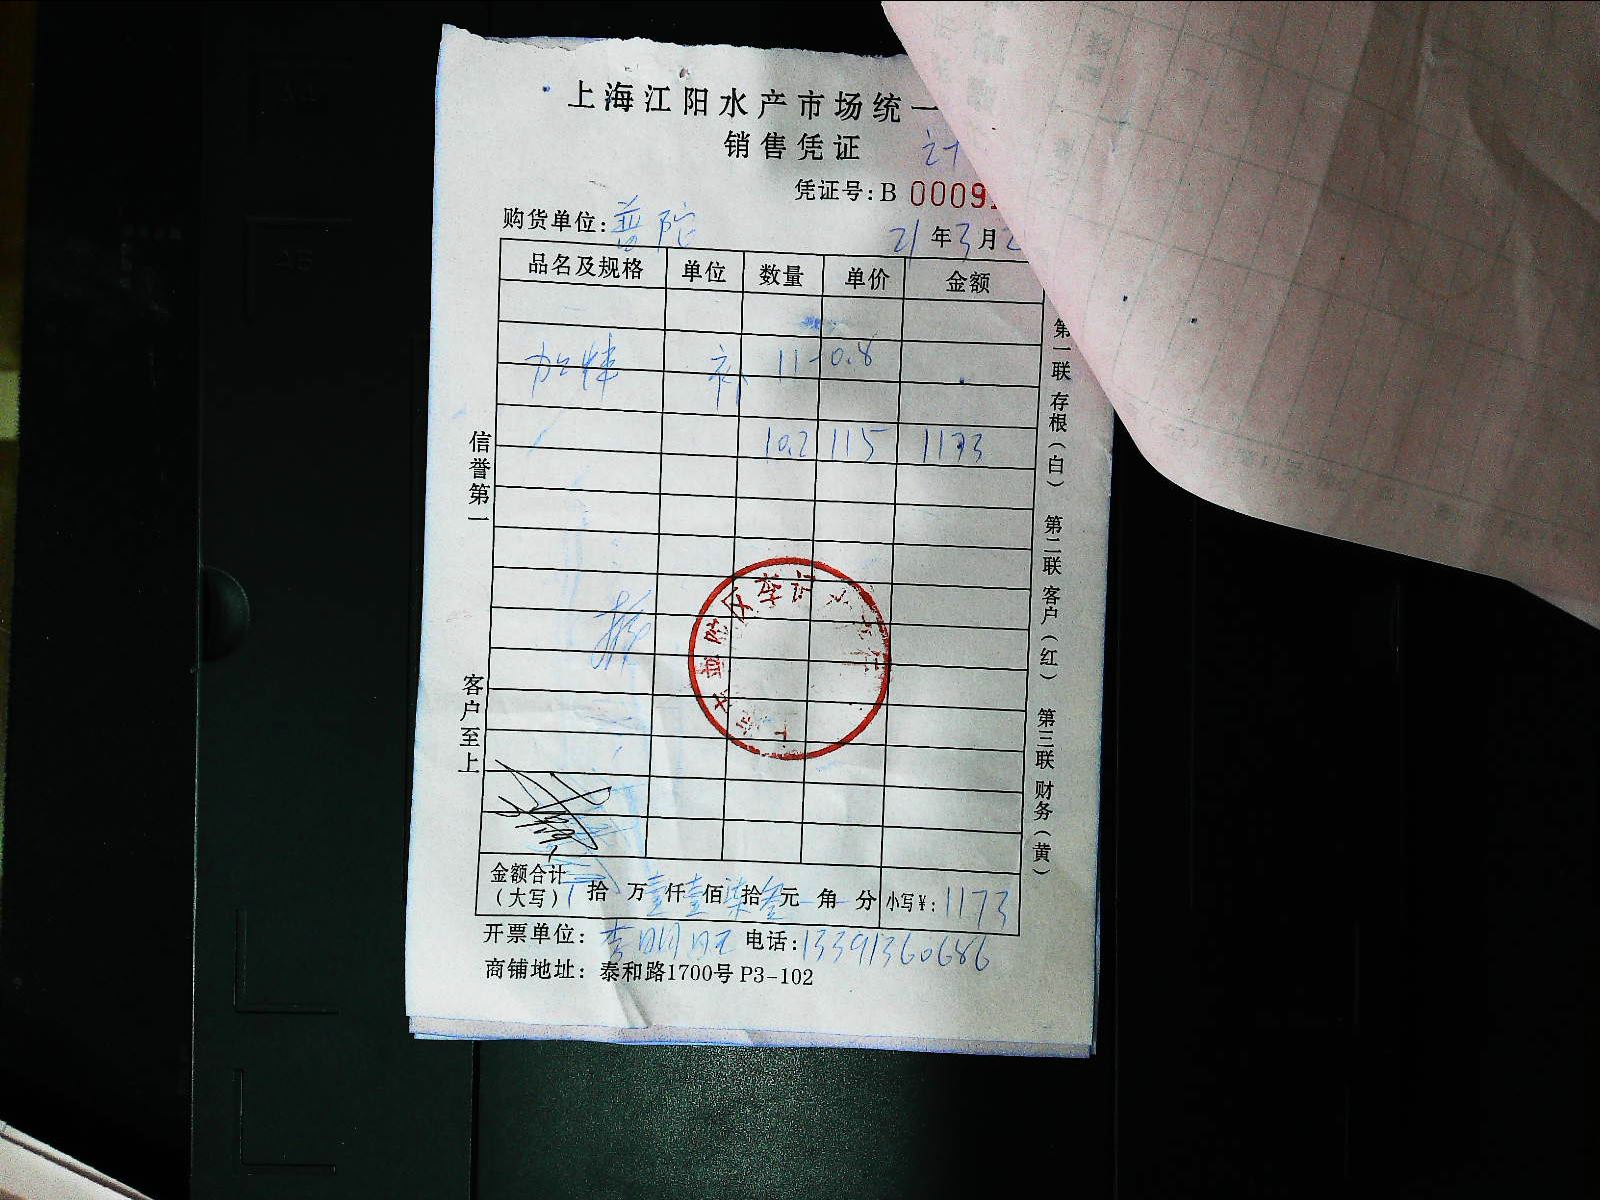 上海江阳水产市场统一
销售凭证
凭证号:B 0009
购货单位:普陀
21年3月2
品名及规格 单位 数量 单价 金额
11-0.8
10.2 115 1173
信誉第一
客户至上
第一联 存根(白) 第二联 客户(红) 第三联 财务(黄)
金额合计
(大写) 拾 万壹仟壹佰柒拾叁元 角 分 小写¥:1173
开票单位:李明旺 电话:13391360686
商铺地址:泰和路1700号 P3-102